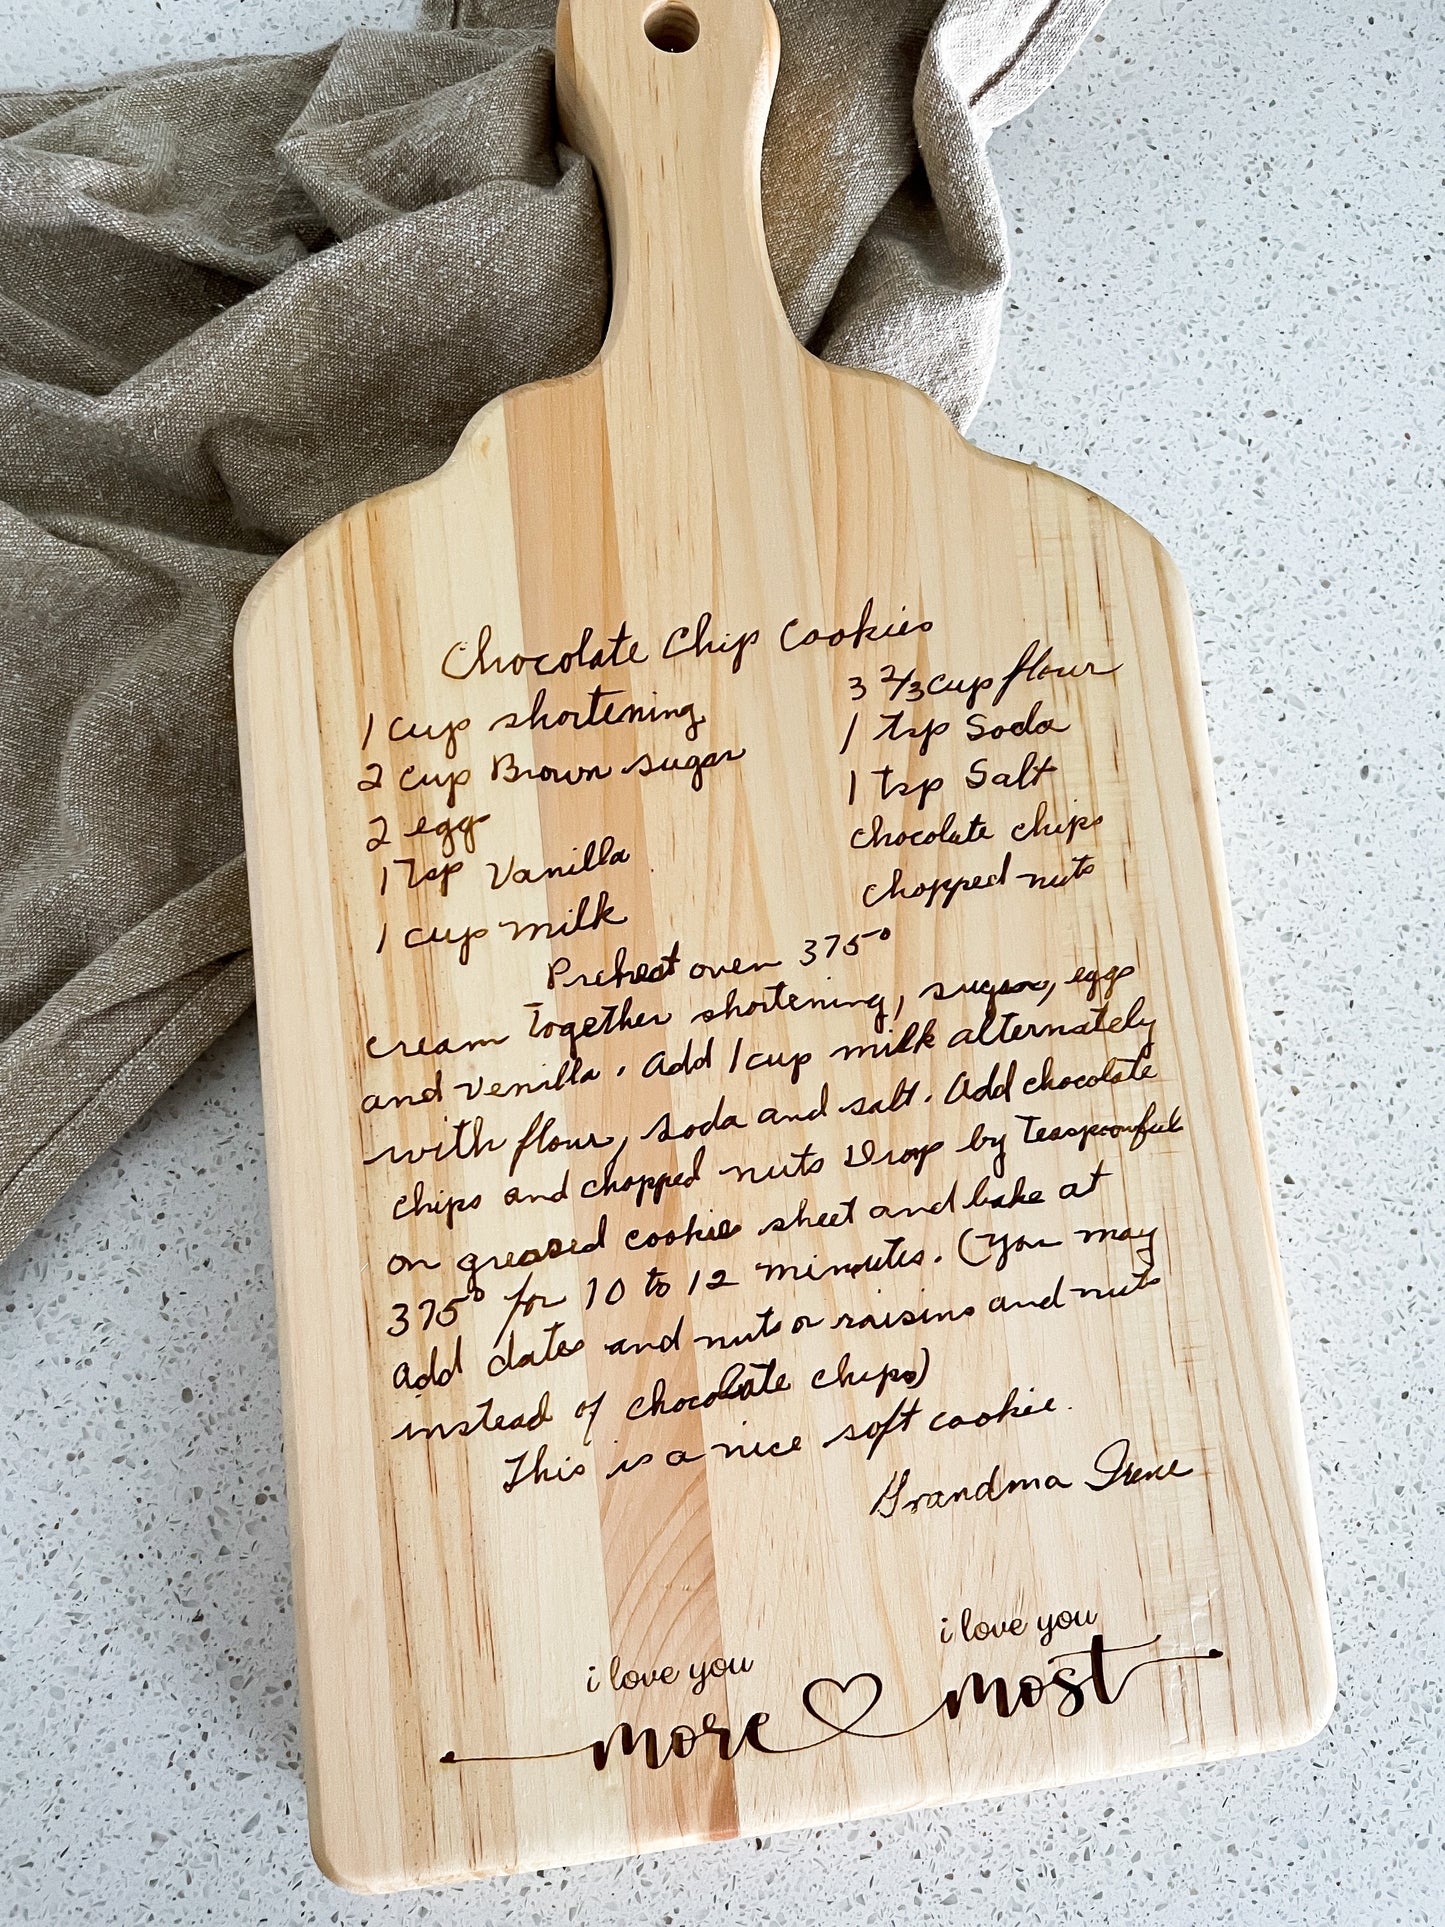 Chocolate Chip Cookies
1 cup shortening
2 cup Brown sugar
2 egg
1 Tsp Vanilla
1 cup milk
3 2/3 cup flour
1 tsp Soda
1 tsp Salt
chocolate chips
chopped nuts
Preheat oven 375°
cream Together shortening, sugar, eggs
and Venilla. Add 1 cup milk alternately
with flour, soda and salt. Add chocolate
chips and chopped nuts Drop by Teaspoonful
on greased cookie sheet and bake at
375° for 10 to 12 minutes. (You may
add dates and nuts or raisins and nuts
instead of chocolate chips)
This is a nice soft cookie.
Grandma Irene
i love you more
i love you most